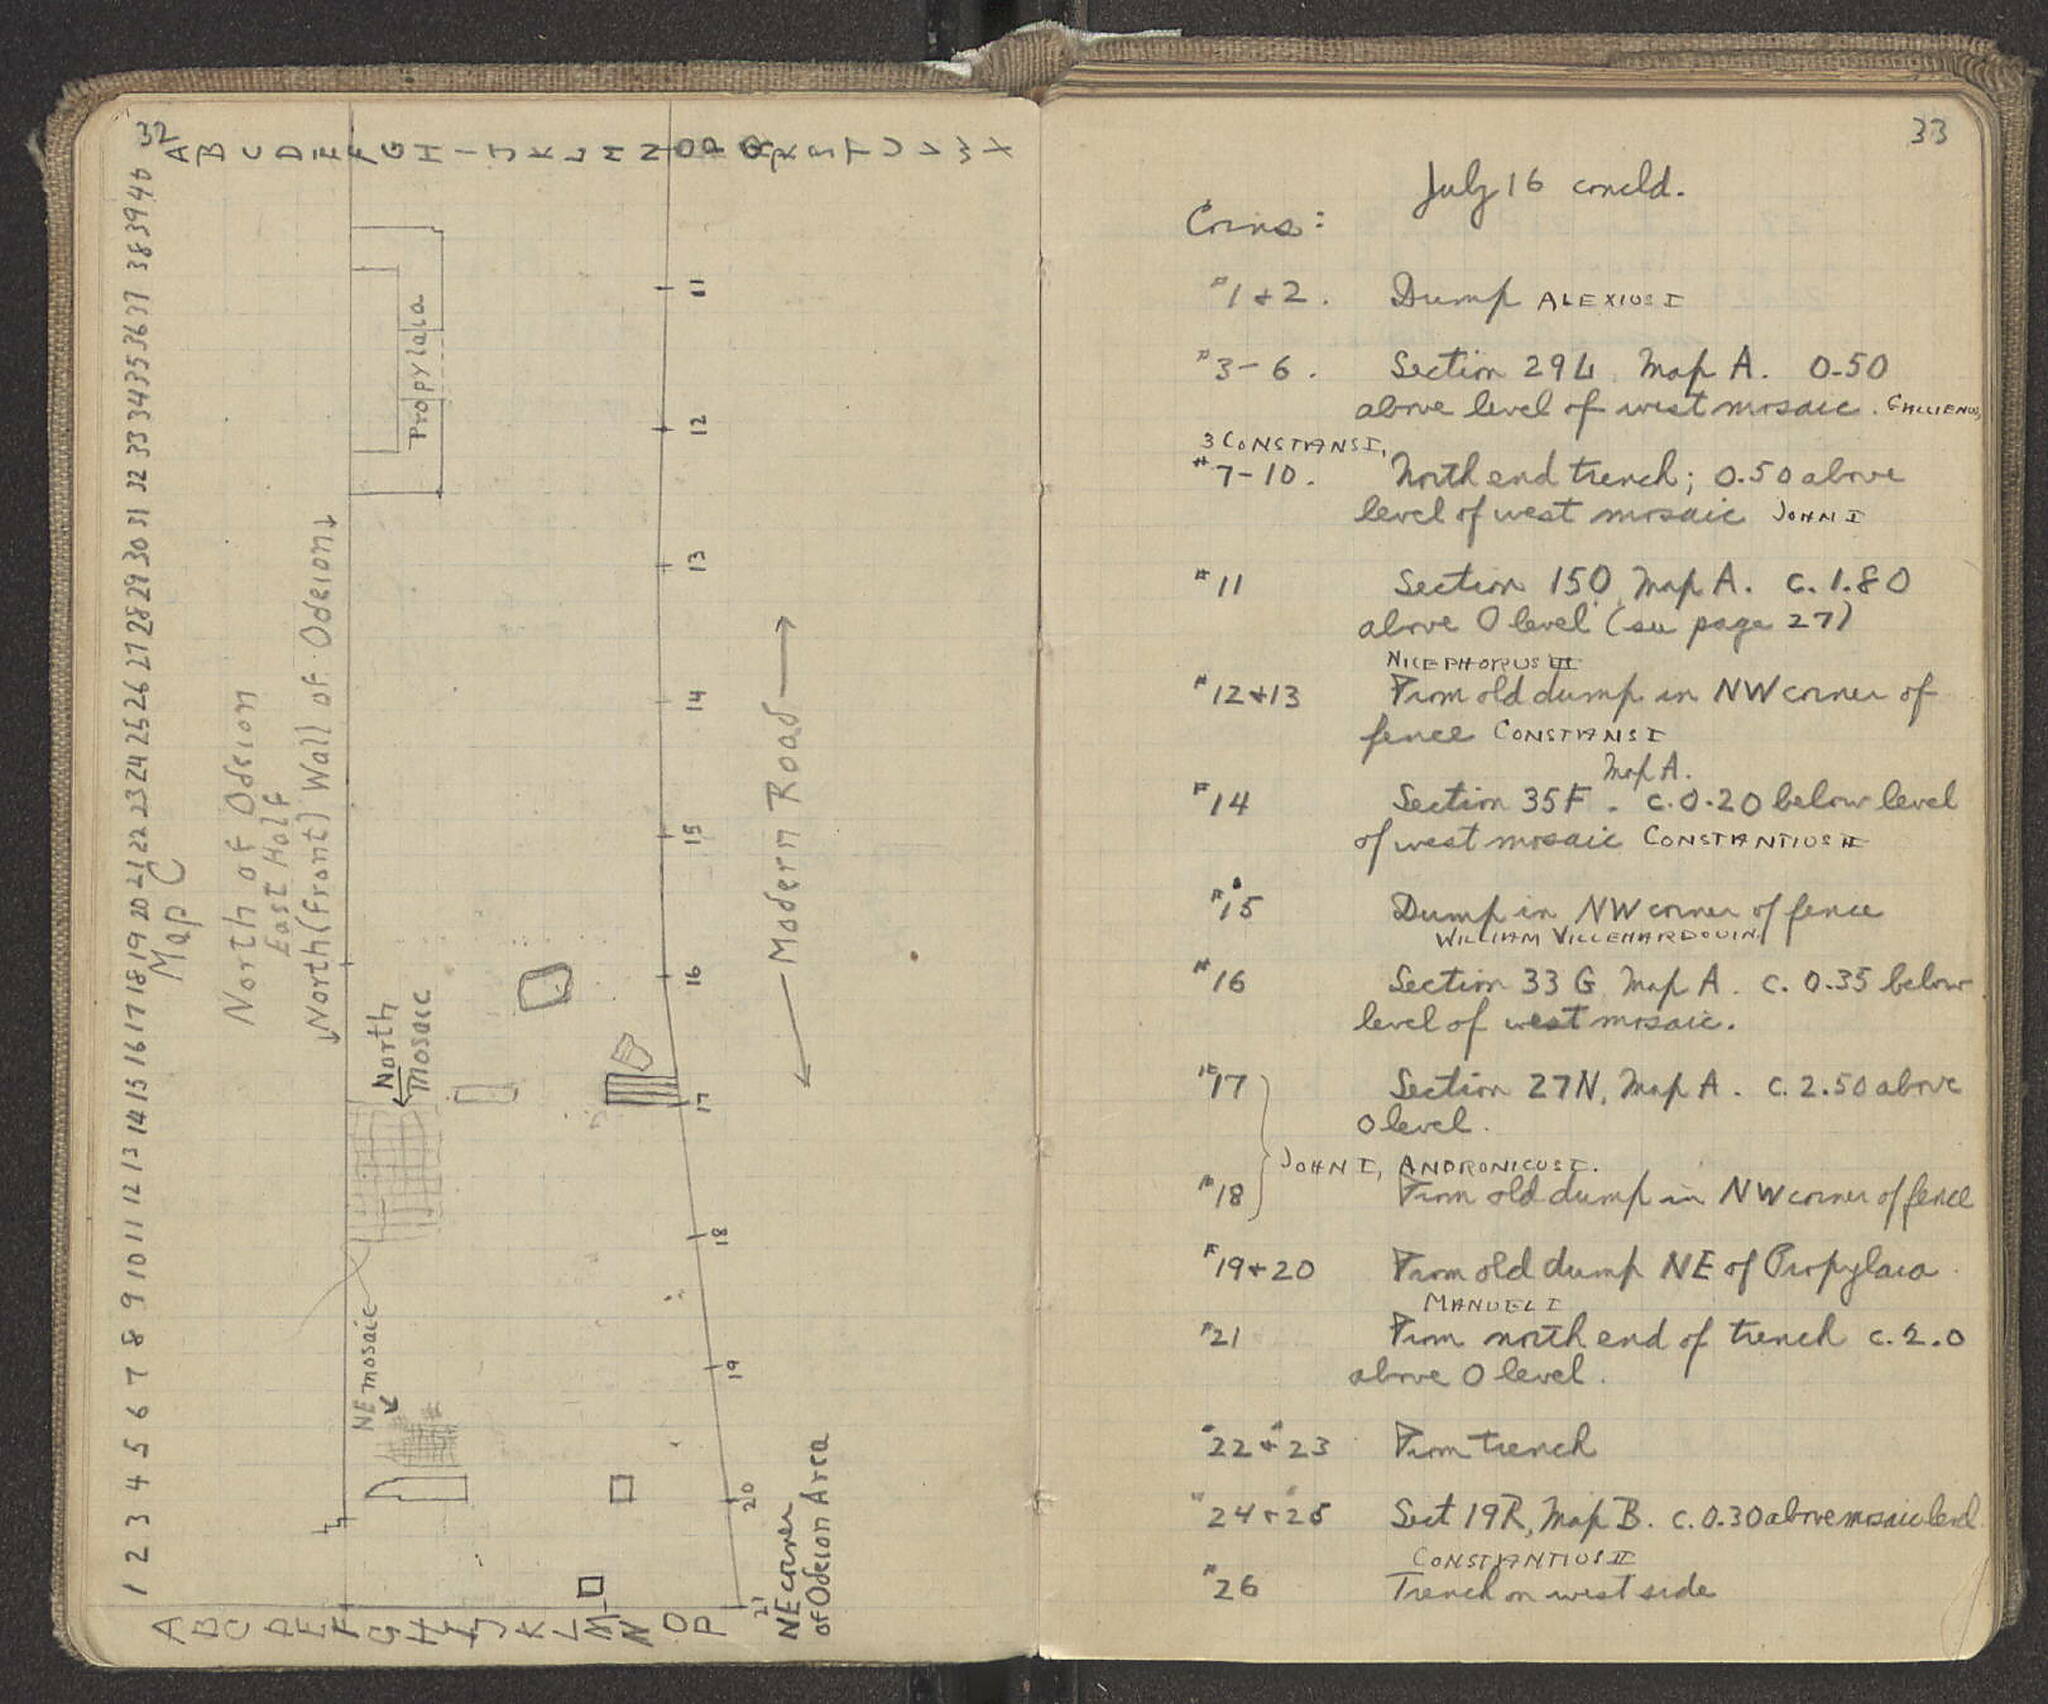 32
A B C D E F G H I J K L M N O P Q R S T U V W X
1 2 3 4 5 6 7 8 9 10 11 12 13 14 15 16 17 18 19 20 21 22 23 24 25 26 27 28 29 30 31 32 33 34 35 36 37 38 39 40
Map C
North of Odeion
East Half
North (Front) Wall of Odeion
Propylaia
North
Mosaic
NE mosaic
11
12
13
14
15
16
17
18
19
20
21
Modern Road
NE corner
of Odeion Area
A B C D E F G H I J K L M N O P
33
July 16 concld.
Coins:
#1 + 2. Dump ALEXIUS I
#3-6. Section 29L, Map A. 0.50
above level of west mosaic. GALLIENUS,
3 CONSTANS I,
#7-10. North end trench; 0.50 above
level of west mosaic JOHN I
#11 Section 15O, Map A. c. 1.80
above O level (see page 27)
NICEPHORUS III
#12+13 From old dump in NW corner of
fence CONSTANS I
Map A.
#14 Section 35F. c. 0.20 below level
of west mosaic CONSTANTIUS II
#15 Dump in NW corner of fence
WILLIAM VILLEHARDOUIN
#16 Section 33 G, Map A. c. 0.35 below
level of west mosaic.
#17 Section 27N, Map A. c. 2.50 above
O level.
JOHN I, ANDRONICUS I.
#18 From old dump in NW corner of fence
#19+20 From old dump NE of Propylaia
MANUEL I
#21 From north end of trench c. 2.0
above O level.
#22 + #23 From trench
#24 + 25 Sect 19R, Map B. c. 0.30 above mosaic level
CONSTANTIUS II
#26 Trench on west side